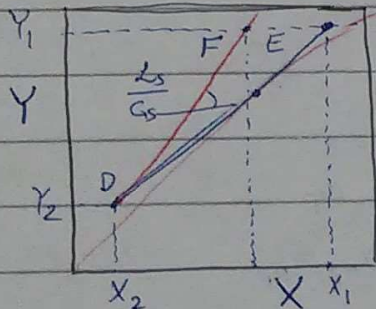 Y₁
F E
Ls
Gs
Y
D
Y₂
X₂ X X₁